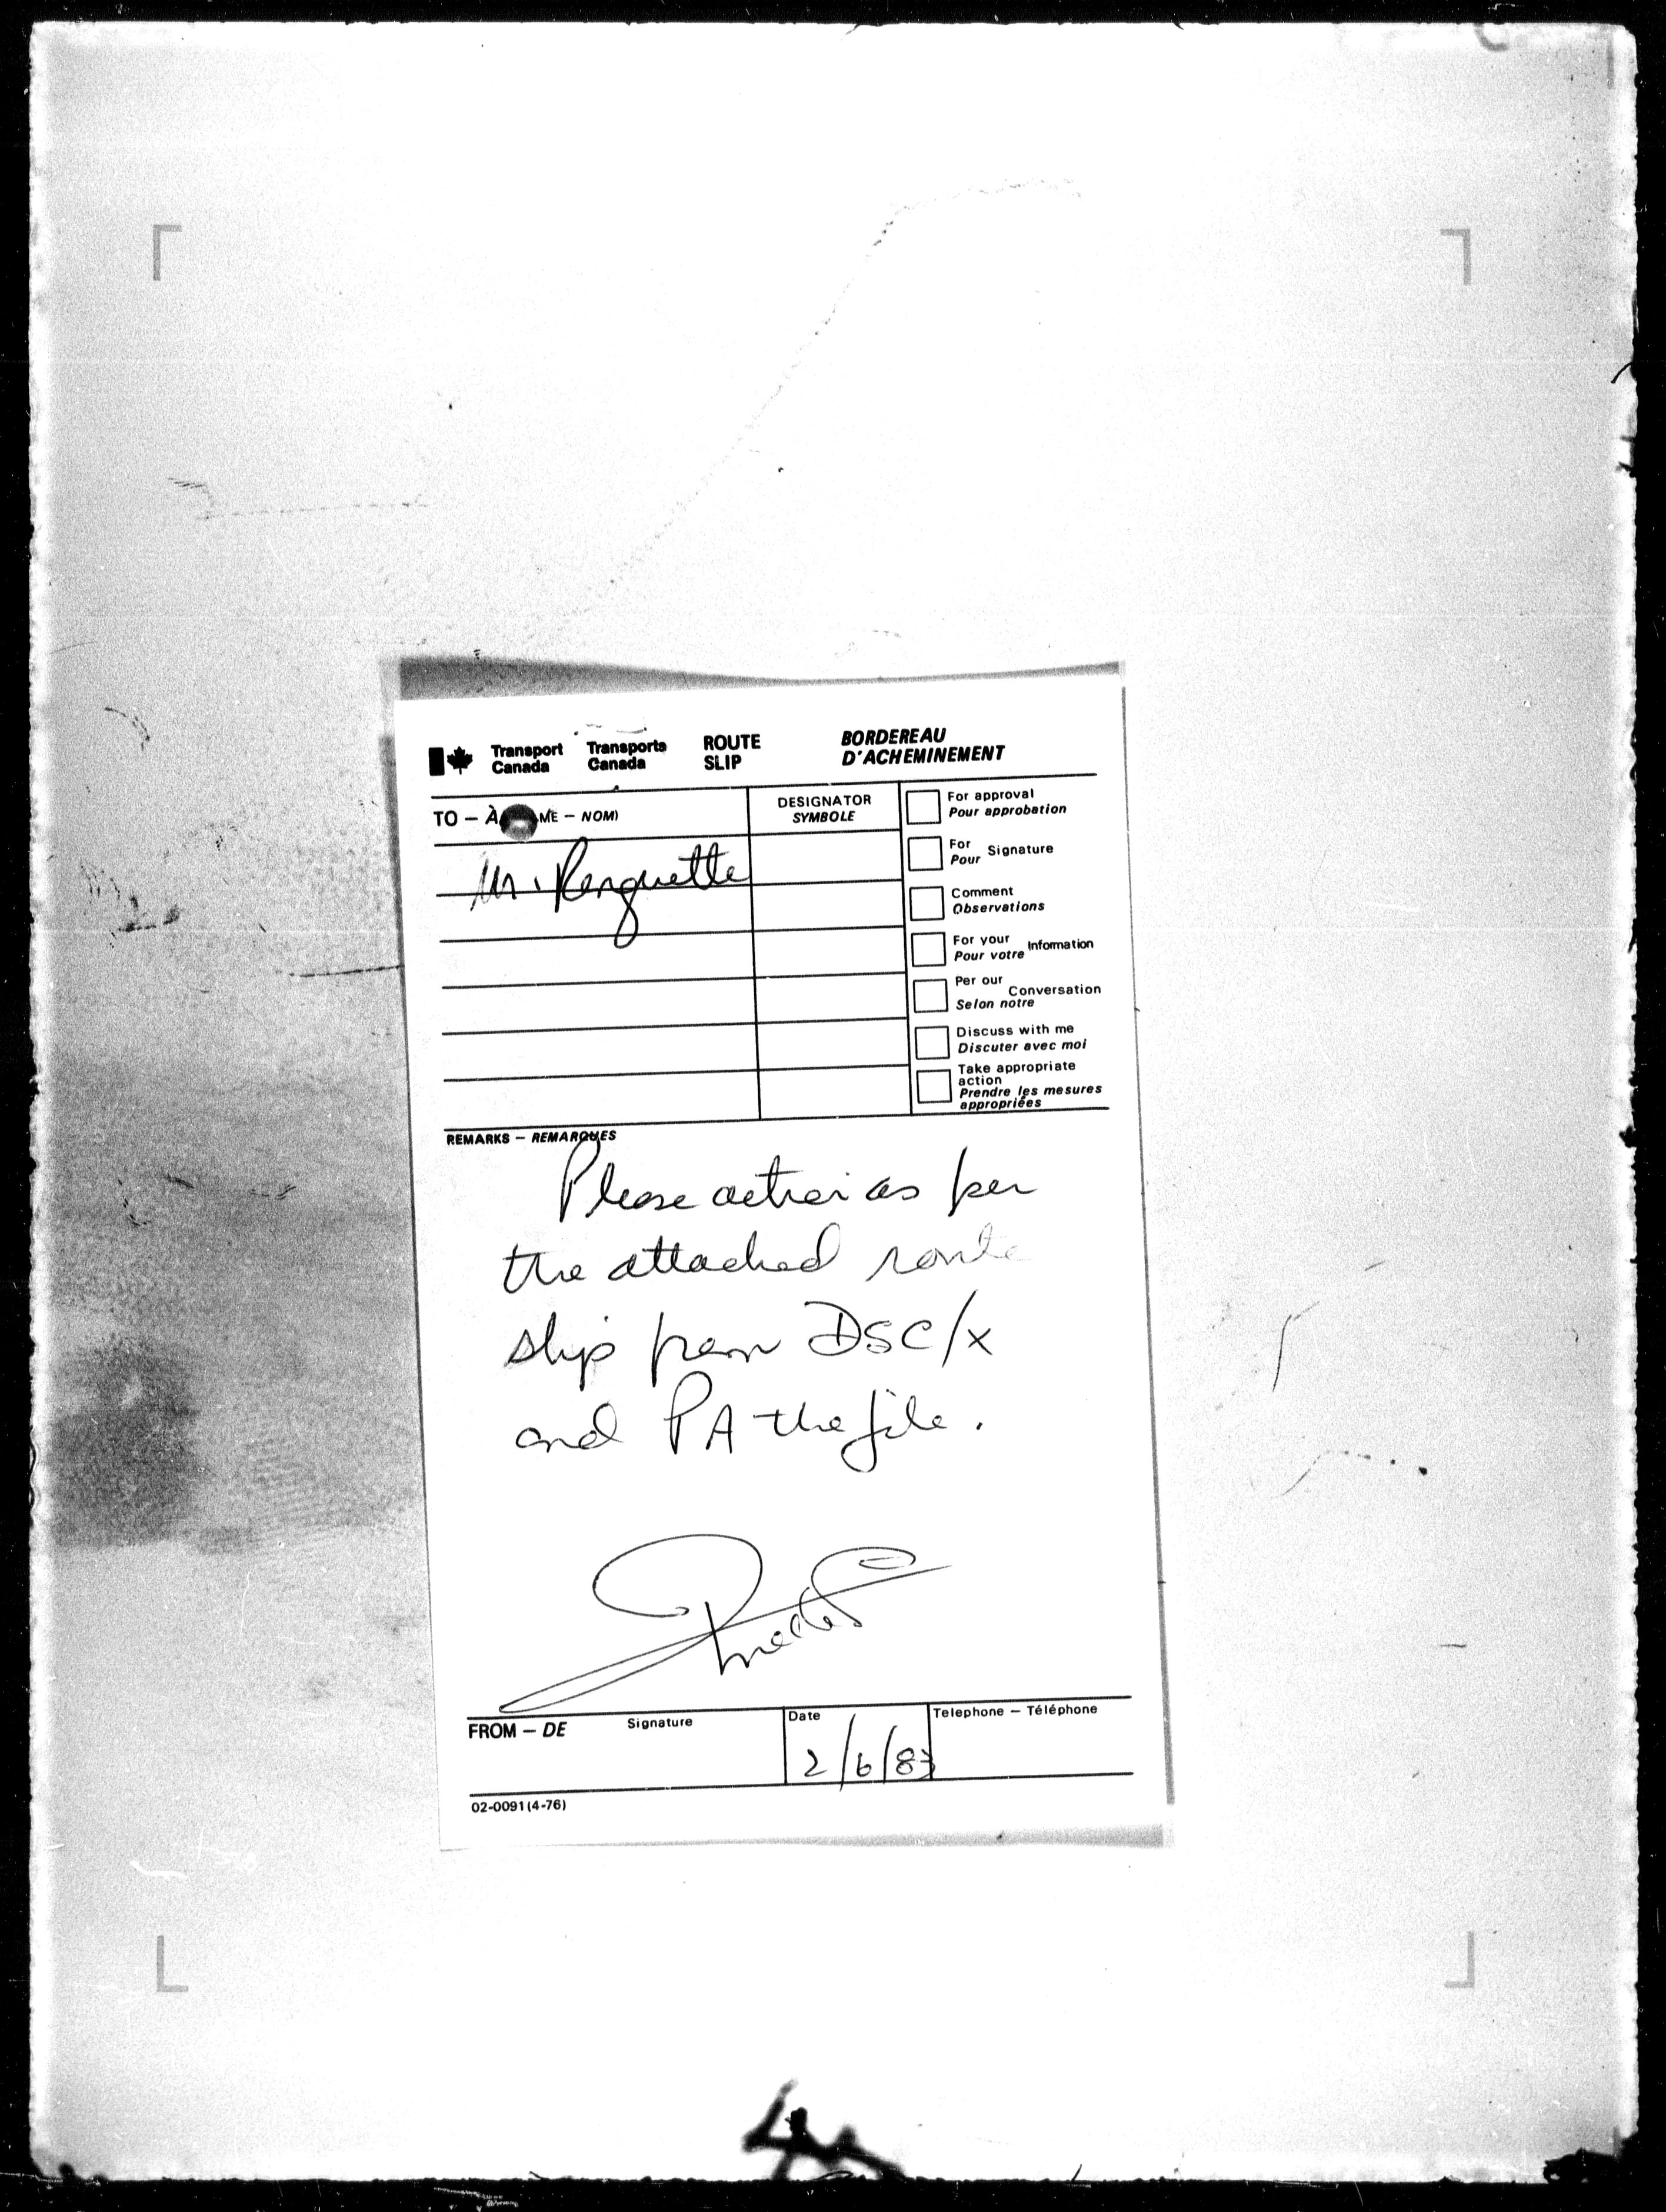 Transport Canada Transports Canada ROUTE SLIP BORDEREAU D'ACHEMINEMENT
TO – À ME – NOM)
DESIGNATOR
SYMBOLE
Mr.
For approval
Pour approbation
For Pour Signature
Comment
Observations
For your Pour votre Information
Per our Selon notre Conversation
Discuss with me
Discuter avec moi
Take appropriate
action
Prendre les mesures
appropriées
REMARKS – REMARQUES
Please action as per
the attached route
slip from DSC/x
and PA the file.
FROM – DE Signature
Date
2/6/83
Telephone – Téléphone
02-0091 (4-76)